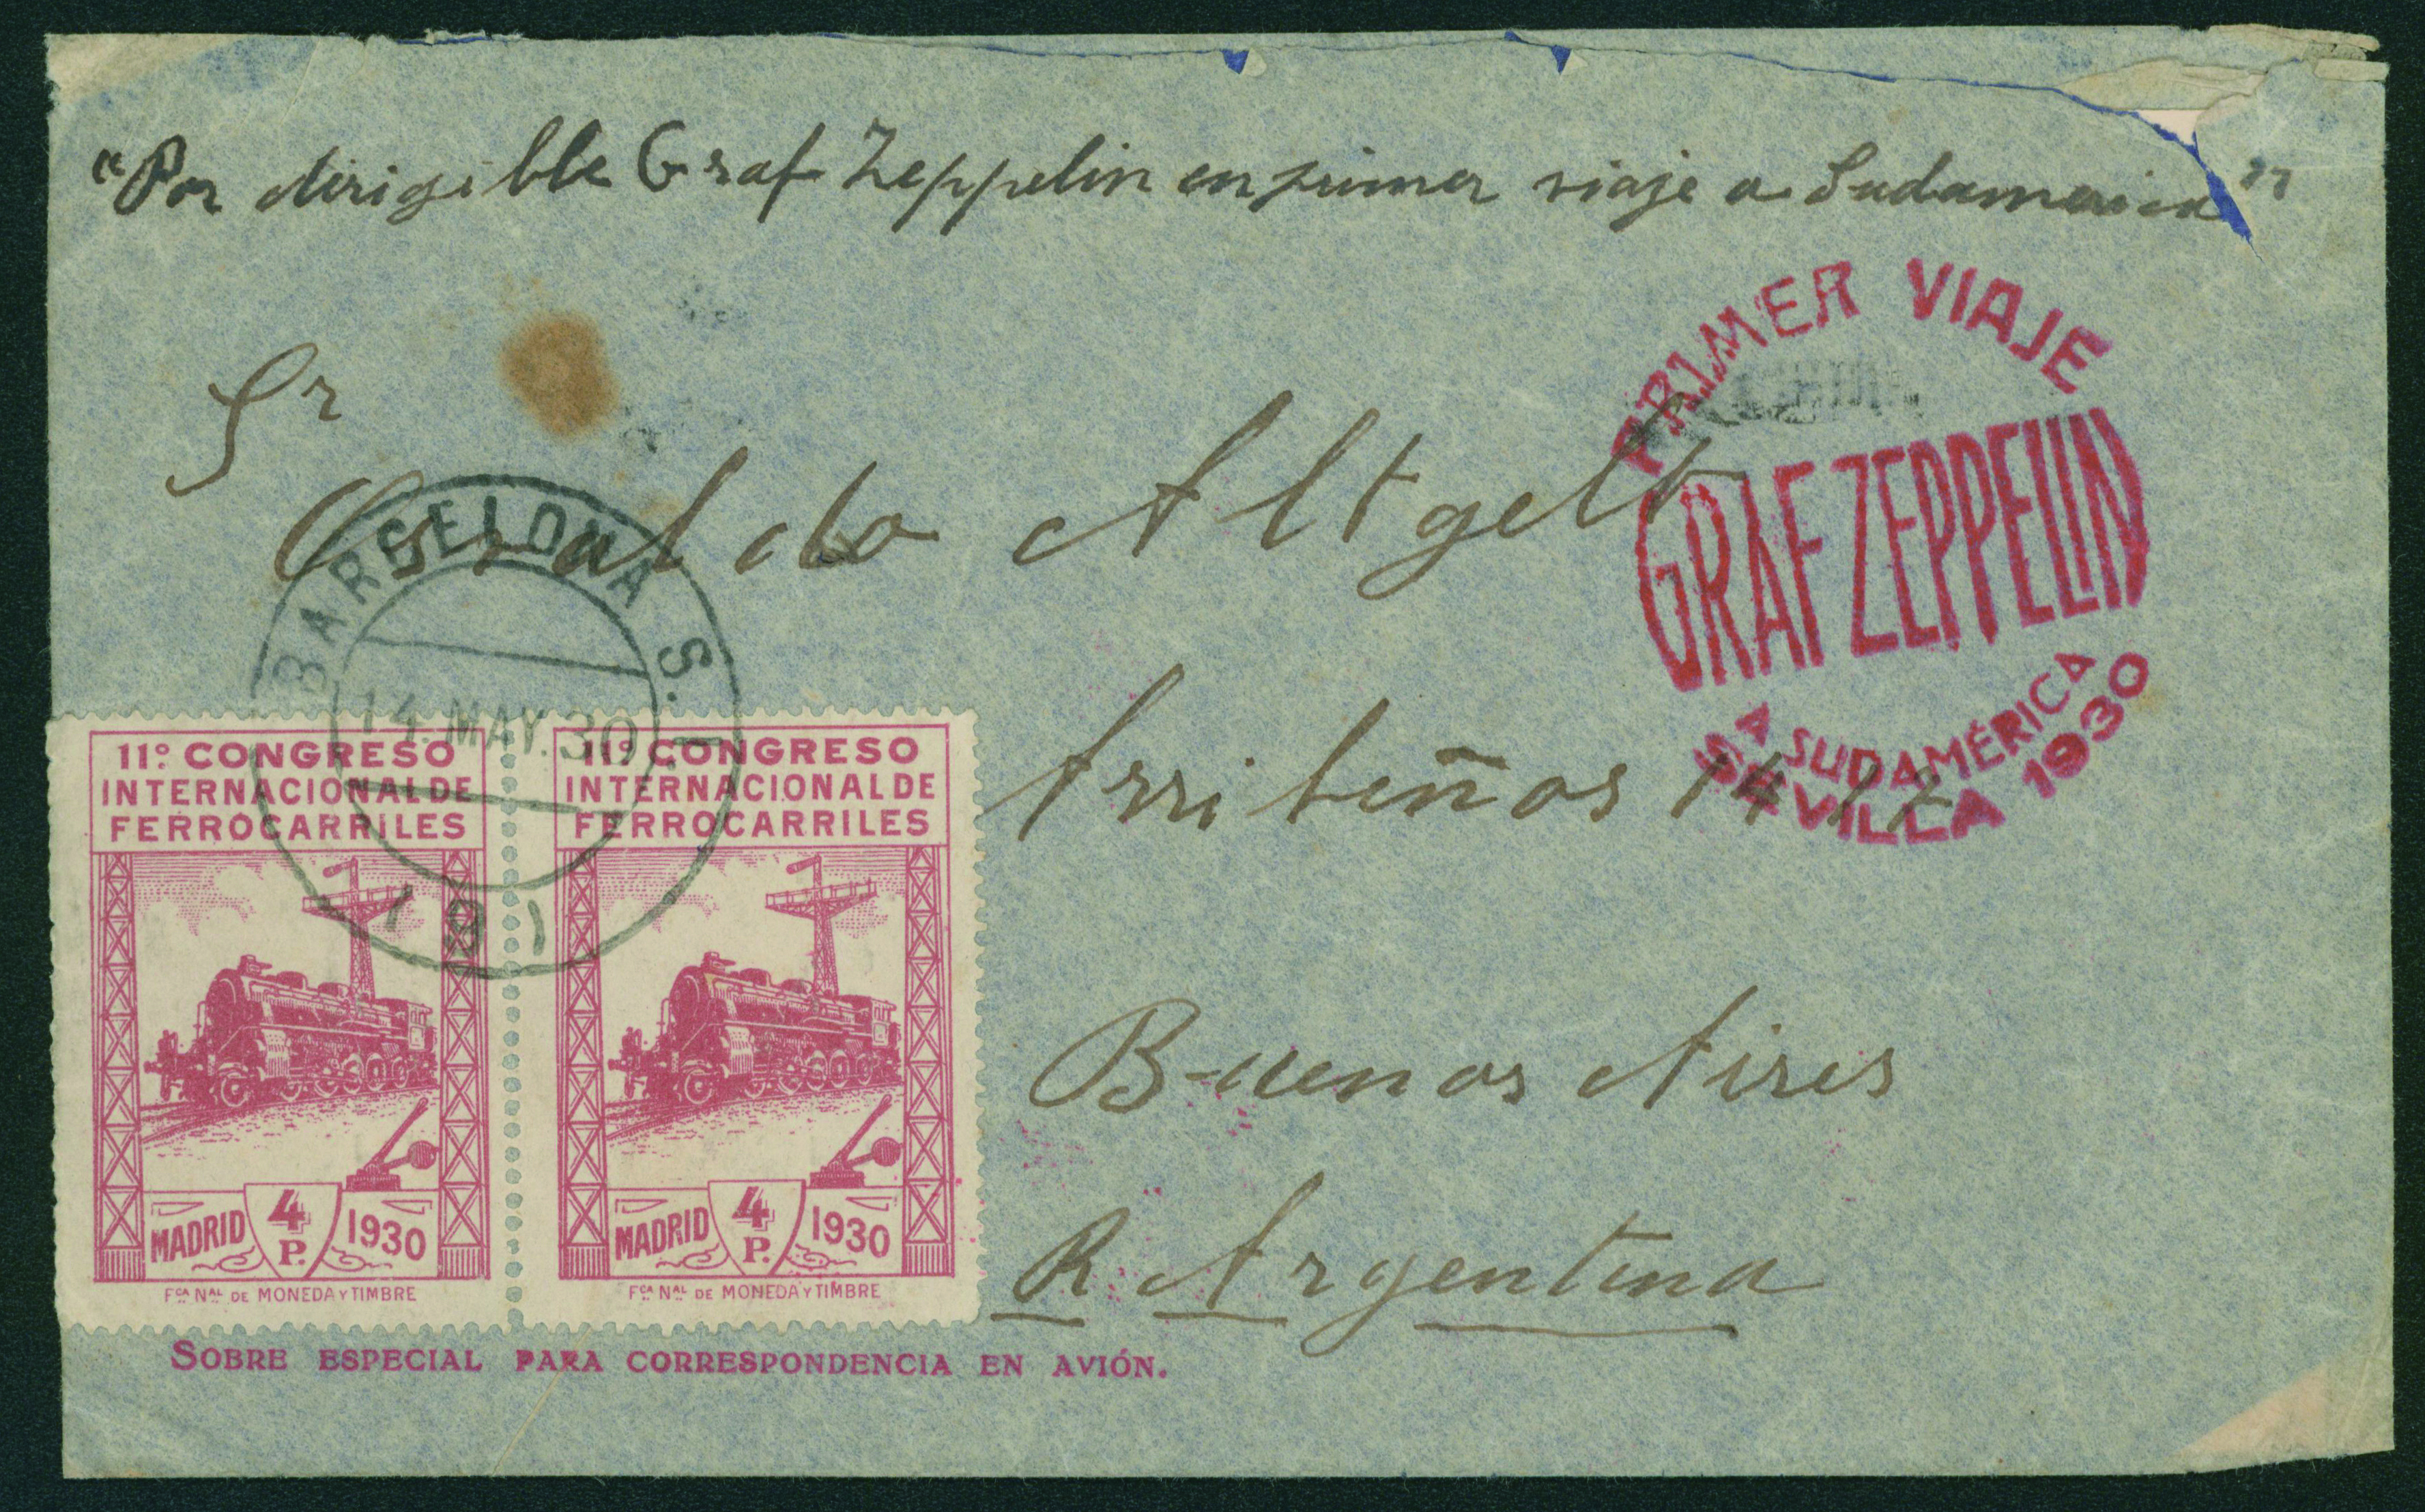 "Por dirigible Graf Zeppelin en primer viaje a Sudamerica"
PRIMER VIAJE
GRAF ZEPPELIN
Sr
Altgelt
BARCELONA S. 1.
14.MAY.30
Arribeños
Aª SUDAMÉRICA
SEVILLA 1930
11º CONGRESO
INTERNACIONAL DE
FERROCARRILES
MADRID 4 P. 1930
Fca Nal DE MONEDA Y TIMBRE
11º CONGRESO
INTERNACIONAL DE
FERROCARRILES
MADRID 4 P. 1930
Fca Nal DE MONEDA Y TIMBRE
Buenos Aires
R Argentina
SOBRE ESPECIAL PARA CORRESPONDENCIA EN AVIÓN.